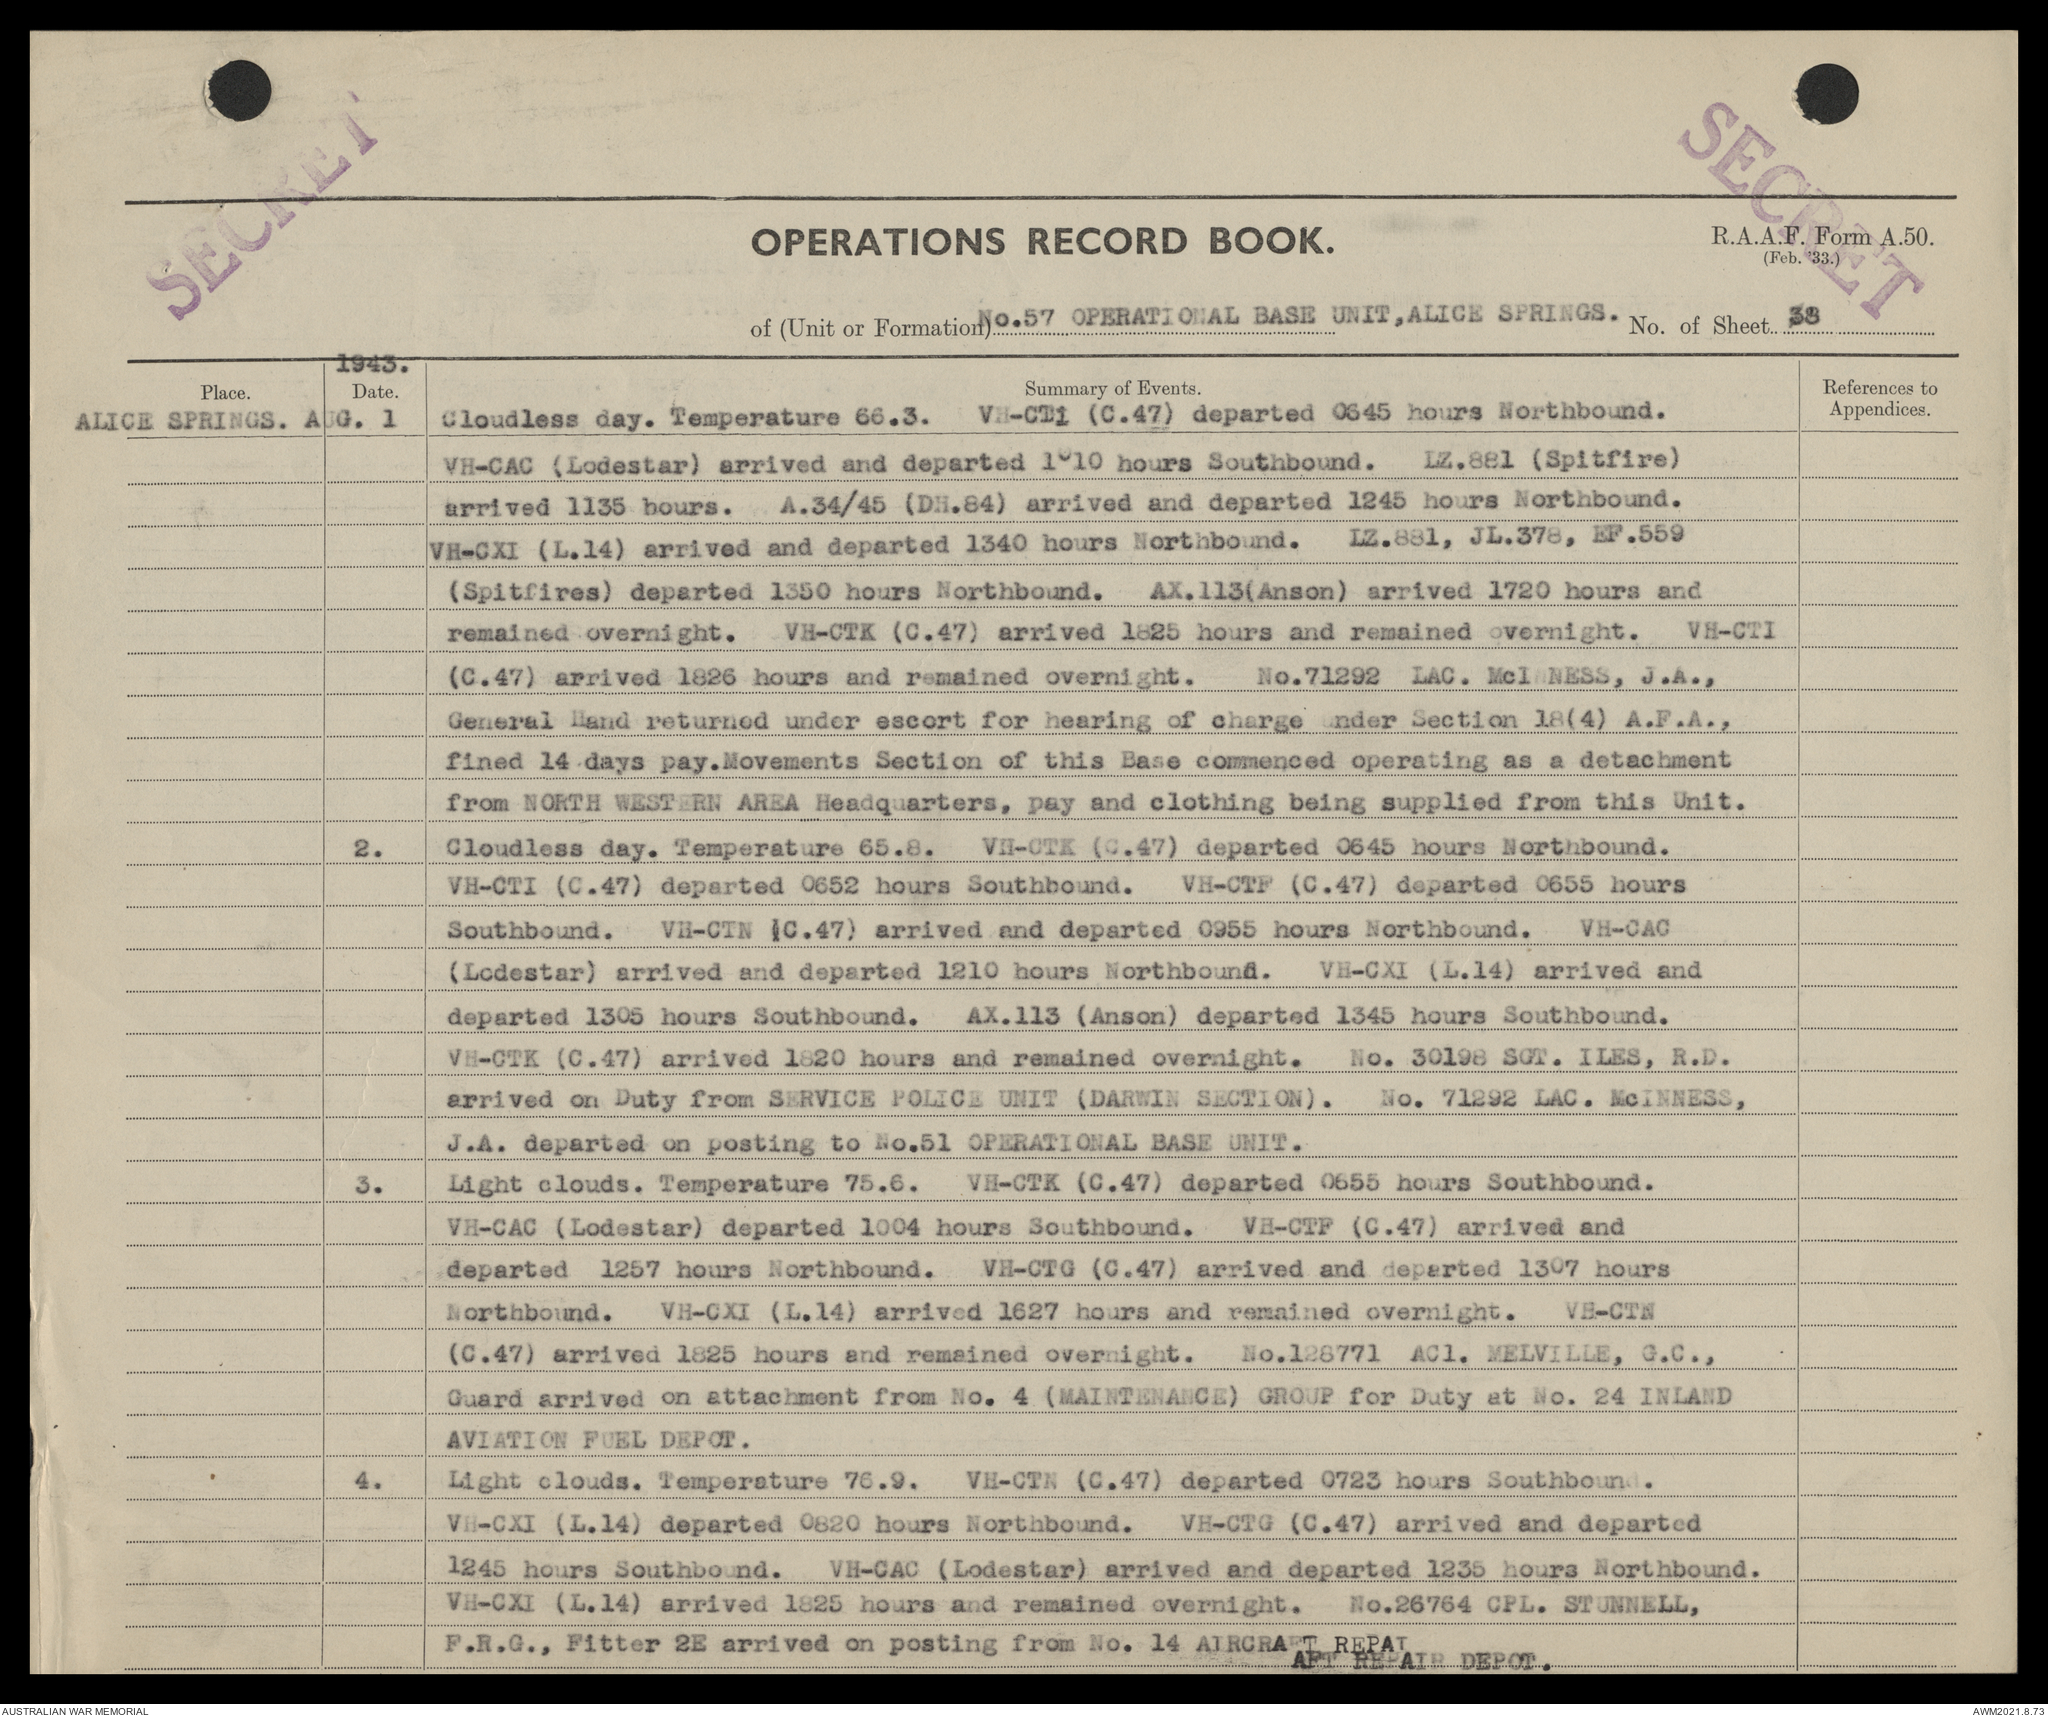 SECRET
SECRET
OPERATIONS RECORD BOOK.
R.A.A.F. Form A.50.
(Feb. '33.)
of (Unit or Formation) No.57 OPERATIONAL BASE UNIT, ALICE SPRINGS. No. of Sheet 38
1943.
Place. Date. Summary of Events. References to Appendices.
ALICE SPRINGS. AUG. 1 Cloudless day. Temperature 66.3. VH-CTI (C.47) departed 0645 hours Northbound.
VH-CAC (Lodestar) arrived and departed 1010 hours Southbound. LZ.881 (Spitfire)
arrived 1135 hours. A.34/45 (DH.84) arrived and departed 1245 hours Northbound.
VH-CXI (L.14) arrived and departed 1340 hours Northbound. LZ.881, JL.378, EF.559
(Spitfires) departed 1350 hours Northbound. AX.113(Anson) arrived 1720 hours and
remained overnight. VH-CTK (C.47) arrived 1825 hours and remained overnight. VH-CTI
(C.47) arrived 1826 hours and remained overnight. No.71292 LAC. McINNESS, J.A.,
General Hand returned under escort for hearing of charge under Section 18(4) A.F.A.,
fined 14 days pay.Movements Section of this Base commenced operating as a detachment
from NORTH WESTERN AREA Headquarters, pay and clothing being supplied from this Unit.
2. Cloudless day. Temperature 65.8. VH-CTK (C.47) departed 0645 hours Northbound.
VH-CTI (C.47) departed 0652 hours Southbound. VH-CTF (C.47) departed 0655 hours
Southbound. VH-CTN (C.47) arrived and departed 0955 hours Northbound. VH-CAC
(Lodestar) arrived and departed 1210 hours Northbound. VH-CXI (L.14) arrived and
departed 1305 hours Southbound. AX.113 (Anson) departed 1345 hours Southbound.
VH-CTK (C.47) arrived 1820 hours and remained overnight. No. 30198 SGT. ILES, R.D.
arrived on Duty from SERVICE POLICE UNIT (DARWIN SECTION). No. 71292 LAC. McINNESS,
J.A. departed on posting to No.51 OPERATIONAL BASE UNIT.
3. Light clouds. Temperature 75.6. VH-CTK (C.47) departed 0655 hours Southbound.
VH-CAC (Lodestar) departed 1004 hours Southbound. VH-CTF (C.47) arrived and
departed 1257 hours Northbound. VH-CTG (C.47) arrived and departed 1307 hours
Northbound. VH-CXI (L.14) arrived 1627 hours and remained overnight. VH-CTN
(C.47) arrived 1825 hours and remained overnight. No.128771 AC1. MELVILLE, G.C.,
Guard arrived on attachment from No. 4 (MAINTENANCE) GROUP for Duty at No. 24 INLAND
AVIATION FUEL DEPOT.
4. Light clouds. Temperature 76.9. VH-CTN (C.47) departed 0723 hours Southbound.
VH-CXI (L.14) departed 0820 hours Northbound. VH-CTG (C.47) arrived and departed
1245 hours Southbound. VH-CAC (Lodestar) arrived and departed 1235 hours Northbound.
VH-CXI (L.14) arrived 1825 hours and remained overnight. No.26764 CPL. STUNNELL,
F.R.G., Fitter 2E arrived on posting from No. 14 AIRCRAFT REPAI
AFT REPAIR DEPOT.
AUSTRALIAN WAR MEMORIAL
AWM2021.8.73